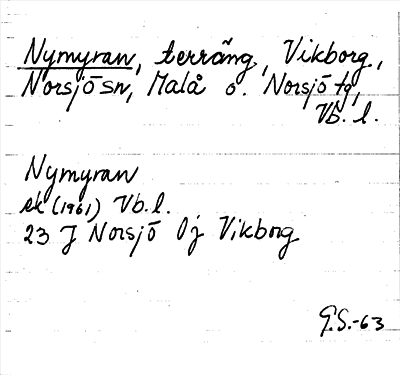 Nymyran, terräng, Vikborg,
Norsjö sn, Malå o. Norsjö tg,
Vb. l.
Nymyran
ek (1961) Vb. l.
23 J Norsjö 0j Vikborg
G.S.-63